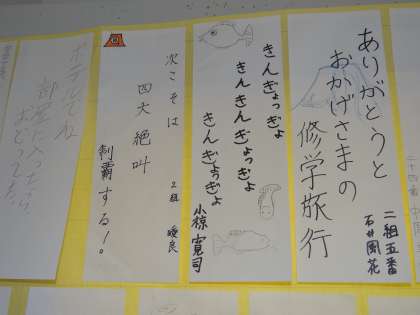 ありがとうと
おかげさまの
修学旅行
二組五番
石井風花
きんぎょっぎょ
きんきんぎょっぎょ
きんぎょっぎょ
小椋寛司
次こそは
四大絶叫
制覇する!。
2組
ホテルでね
部屋に入ったら